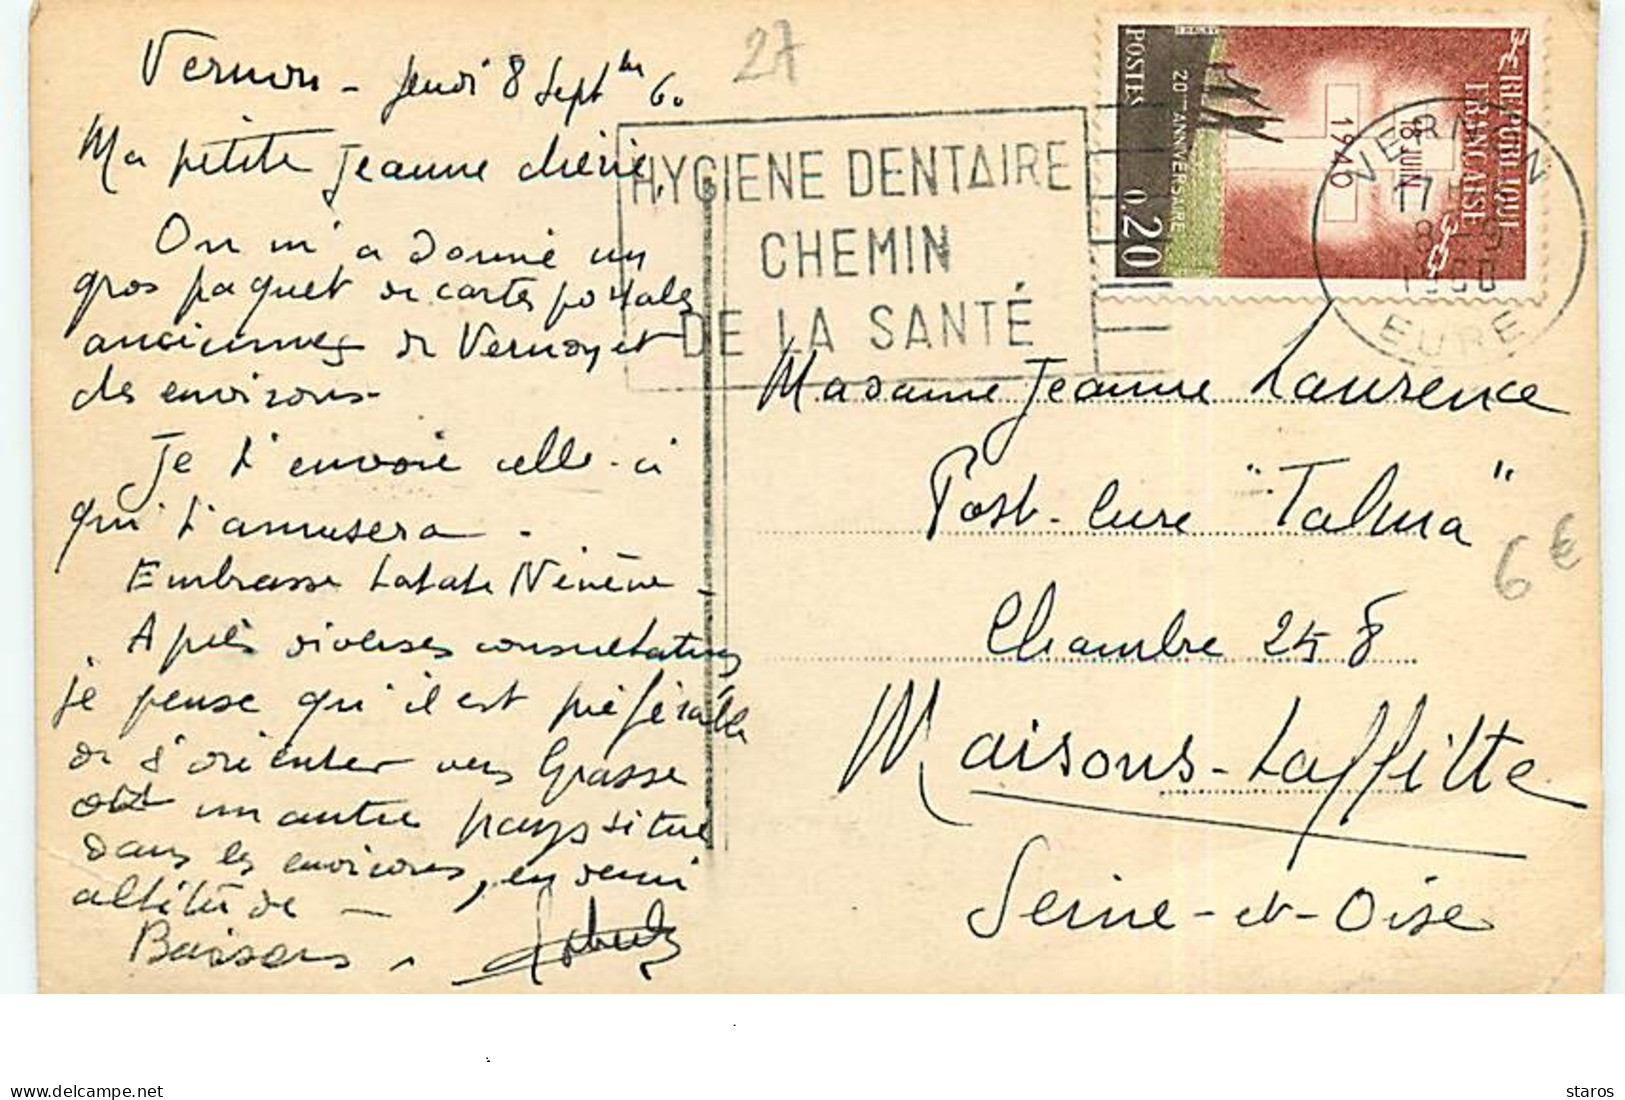 27
Vernon - Jeudi 8 Septbre 60
Ma petite Jeanne chérie,
On m'a donné un
gros paquet de cartes postales
anciennes de Vernon et
des environs -
Je t'envoie celle-ci
qui t'amusera -
Embrasse Tatate Nénène -
Après diverses consultations
je pense qu'il est préférable
de s'orienter vers Grasse
ou un autre pays situé
dans les environs, en demi
altitude -
Baisers -
HYGIENE DENTAIRE
CHEMIN
DE LA SANTÉ
REPUBLIQUE
FRANÇAISE
18 JUIN
1940
20ème ANNIVERSAIRE
POSTES 0,20
VERNON
17 H
8 - 9
1960
EURE
Madame Jeanne Laurence
Post-Cure "Talma"
Chambre 258
Maisons-Laffitte
Seine-et-Oise
6 €
delcampe.net
staros